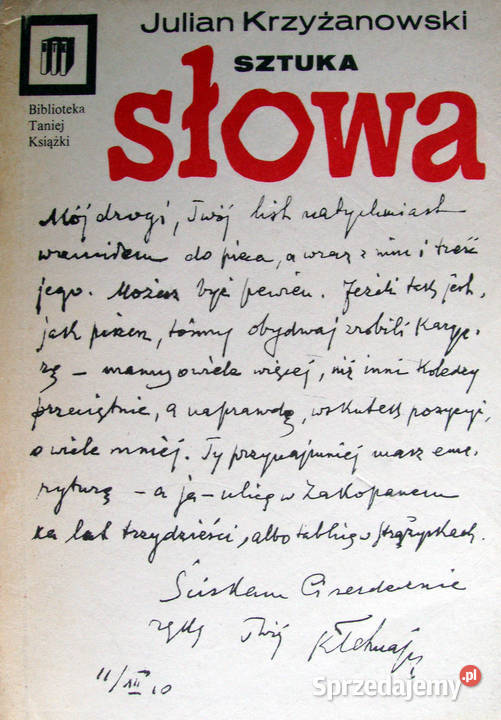 Julian Krzyżanowski
SZTUKA
słowa
Biblioteka
Taniej
Książki
Mój drogi, Twój list natychmiast
wrzuciłem do pieca, a wraz z nim i treść
jego. Możesz być pewien. Jeżeli tak jest,
jak piszesz, tośmy obydwaj zrobili karje-
rę – mamy o wiele więcej, niż inni koledzy
przeciętnie, a naprawdę, wskutek pozycyi,
o wiele mniej. Ty przynajmniej masz eme-
ryturę – a ja – ulicę w Zakopanem
za lat trzydzieści, albo tablicę w Strążyskach.
Ściskam Cię serdecznie
Twój
11/XII 10
Sprzedajemy.pl